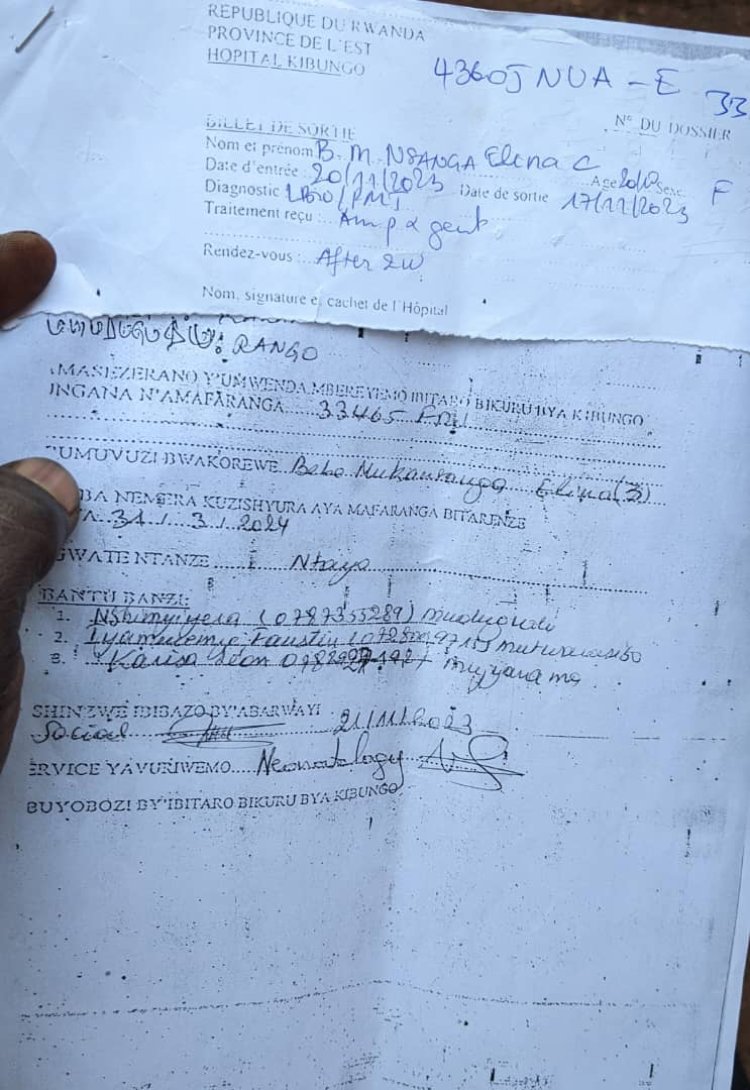 REPUBLIQUE DU RWANDA
PROVINCE DE L'EST
HOPITAL KIBUNGO
43605 NUA - E 33
N° DU DOSSIER
BILLET DE SORTIE
Nom et prénom B. M. NSANGA Elina C Age Sexe F
Date d'entrée : 20/11/2023 Date de sortie 17/11/2023
Diagnostic
Traitement reçu : Amp & gent
Rendez-vous : After 2W
Nom, signature et cachet de l'Hôpital
RANGO
MASEZERANO Y'UMWENDA MBEREYEMO IBITARO BIKURU BYA KIBUNGO
INGANA N'AMAFARANGA 33465 FRW
UMUVUZI BWAKOREWE Bebe Mukansanga Elina (3)
BA NEMERA KUZISHYURA AYA MAFARANGA BITARENZE
31/3/2024
GWATE NTANZE Ntayo
BANTU BANZI:
1. Nshimyiyera (0787355289)
2. Iyamuremye Faustin
3. Karisa Léon
SHINZWE IBIBAZO BY'ABARWAYI
Social 21/11/2023
ERVICE YAVURIWEMO Neonatology
BUYOBOZI BY'IBITARO BIKURU BYA KIBUNGO